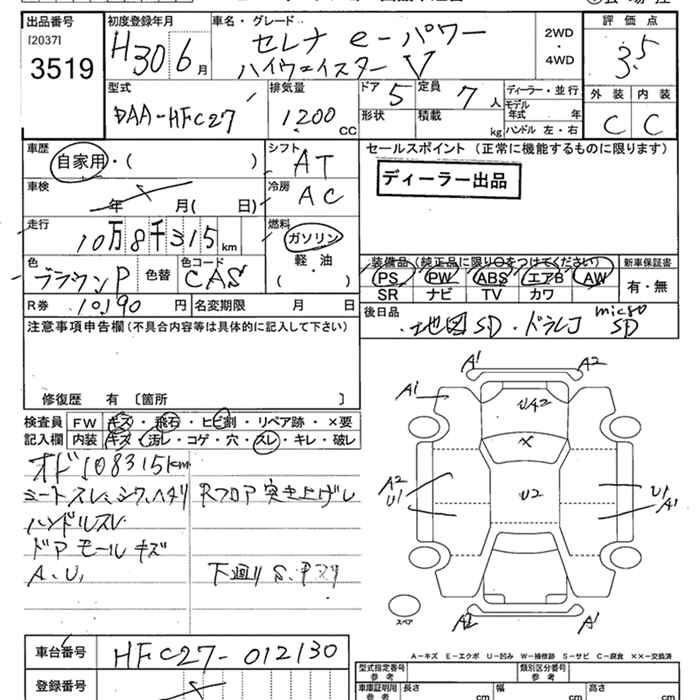 出品番号
[2037]
3519
初度登録年月
H30 6 月
車名・グレード
セレナ e-パワー
ハイウェイスター V
2WD
・
4WD
評価点
3.5
外装 内装
C C
型式
DAA-HFC27
排気量
1200 CC
ドア 5
定員 7 人
形状
積載 kg
ディーラー・並行
モデル年式 年
ハンドル 左・右
車歴
自家用・( )
シフト
AT
車検
年 月( 日)
冷房
AC
走行
10万8千315 km
燃料
ガソリン
軽・油
( )
色
ブラウンP
色替
色コード
CAS
R券 10,190 円
名変期限 月 日
セールスポイント (正常に機能するものに限ります)
ディーラー出品
装備品 (純正品に限り○をつけてください)
新車保証書
PS PW ABS エアB AW
SR ナビ TV カワ
有・無
後日品
地図SD・ドラレコ micro SD
注意事項申告欄 (不具合内容等は具体的に記入して下さい)
修復歴 有 〔箇所 〕
検査員記入欄
FW キズ・飛石・ヒビ割・リペア跡・×要
内装 キズ・汚レ・コゲ・穴・スレ・キレ・破レ
オド108315km
シートスレ、シワ、ヘタリ Rフロア突き上げレ
ハンドルスレ
ドアモールキズ
A、U、
下廻りS、
A1 A2
A1
UA2
×
A2
U1
U2
U1
A1
A2 A1
スペア
A-キズ E-エクボ U-凹み W-補修跡 S-サビ C-腐食 ××-交換済
車台番号
HFC27-012130
登録番号
型式指定番号 参考
類別区分番号 参考
車庫証明用 参考
長さ cm
幅 cm
高さ cm